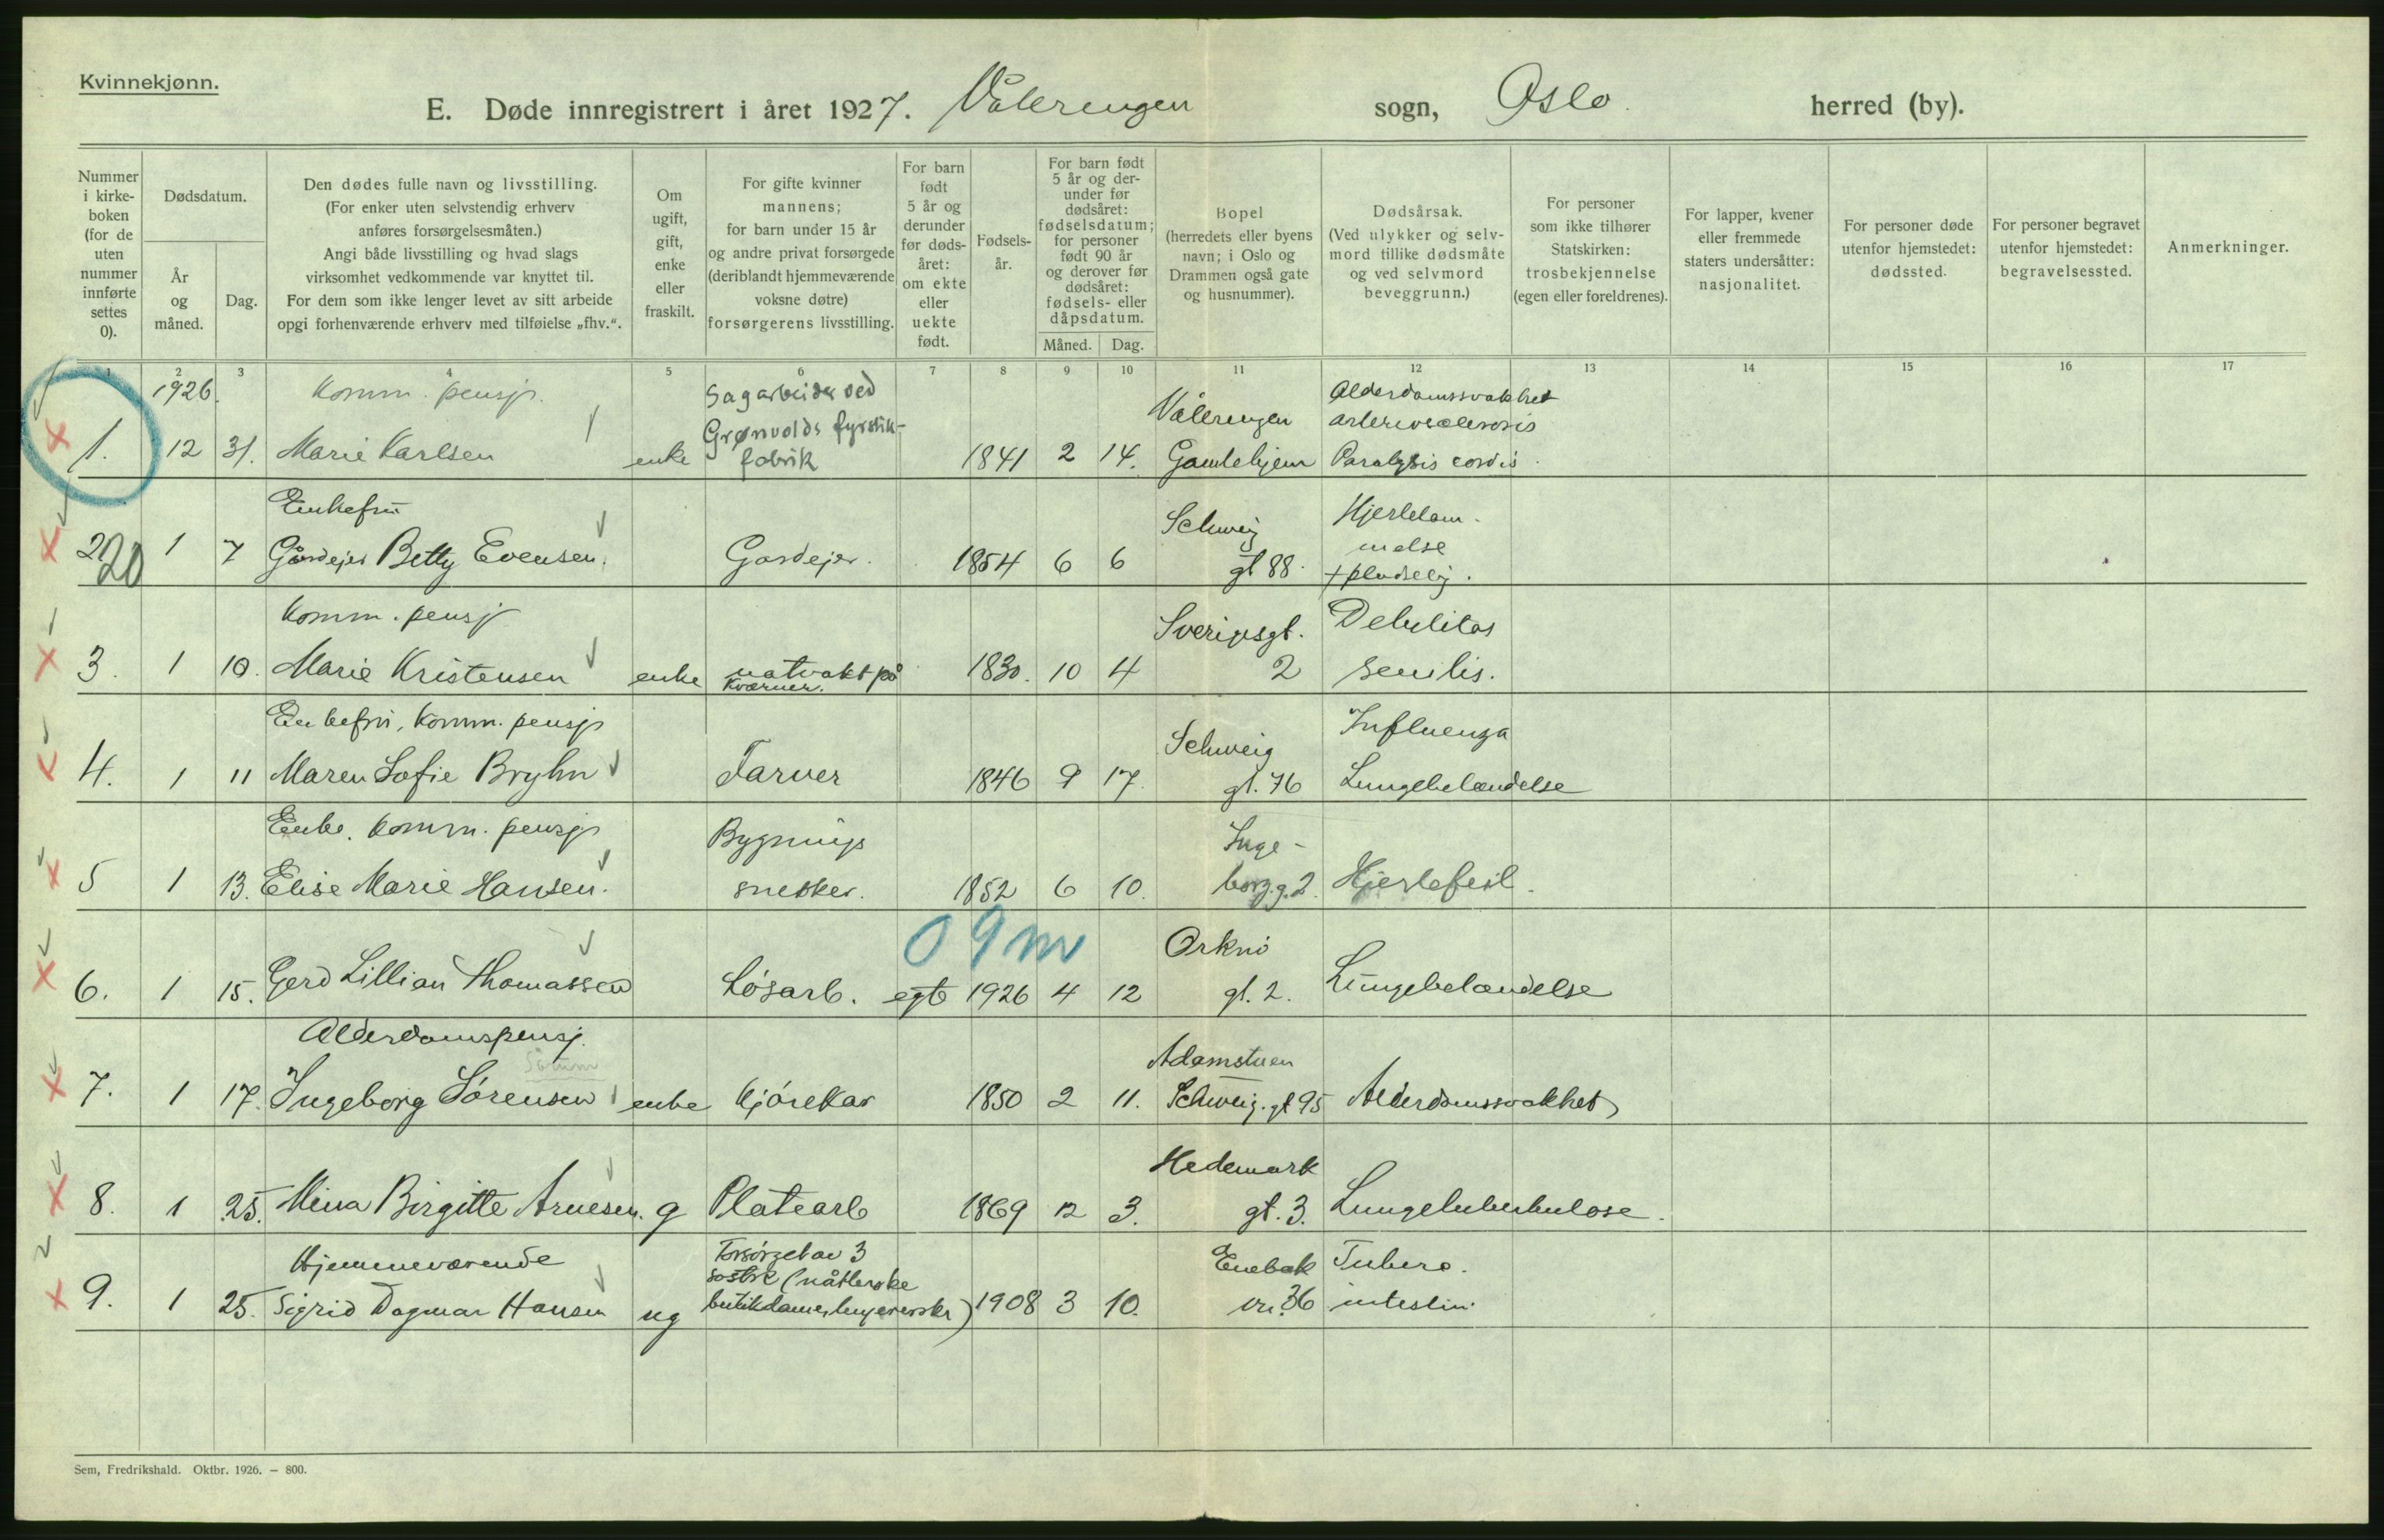 Kvinnekjønn.
E. Døde innregistrert i året 1927. Vålerengen sogn, Oslo. herred (by).
Nummer i kirkeboken (for de uten nummer innførte settes 0).
Dødsdatum.
År og måned.
Dag.
Den dødes fulle navn og livsstilling.
(For enker uten selvstendig erhverv
anføres forsørgelsesmåten.)
Angi både livsstilling og hvad slags
virksomhet vedkommende var knyttet til.
For dem som ikke lenger levet av sitt arbeide
opgi forhenværende erhverv med tilføielse „fhv.“.
Om
ugift,
gift,
enke
eller
fraskilt.
For gifte kvinner
mannens;
for barn under 15 år
og andre privat forsørgede
(deriblandt hjemmeværende
voksne døtre)
forsørgerens livsstilling.
For barn
født
5 år og
derunder
før døds-
året:
om ekte
eller
uekte
født.
Fødsels-
år.
For barn født
5 år og der-
under før
dødsåret:
fødselsdatum;
for personer
født 90 år
og derover før
dødsåret:
fødsels- eller
dåpsdatum.
Måned. Dag.
Bopel
(herredets eller byens
navn; i Oslo og
Drammen også gate
og husnummer).
Dødsårsak.
(Ved ulykker og selv-
mord tillike dødsmåte
og ved selvmord
beveggrunn.)
For personer
som ikke tilhører
Statskirken:
trosbekjennelse
(egen eller foreldrenes).
For lapper, kvener
eller fremmede
staters undersåtter:
nasjonalitet.
For personer døde
utenfor hjemstedet:
dødssted.
For personer begravet
utenfor hjemstedet:
begravelsessted.
Anmerkninger.
1 2 3 4 5 6 7 8 9 10 11 12 13 14 15 16 17
1926. Komm. pensj. Sagarbeider ved Alderdomssvakhet
Grønvolds fyrstik- Vålerengen arteriosclerosis
1. 12 31. Marie Karlsen enke fabrik 1841 2 14. Gamlehjem Paralysis cordis.
Enkefru Schweig Hjertelam-
melse
2 20 1 7 Gårdejer Betty Evensen. Gardejer. 1854 6 6 gt 88. + pludselig.
Komm. pensj Sverigsgt. Debilitas
3. 1 10. Marie Kristensen enke natvakt på 1830. 10 4 2 senilis.
Kværner.
Enkefru, Komm. pensjr Schweig Influenza
4. 1 11 Maren Sofie Bryhn Farver 1846 9 17. gt. 76 Lungebetændelse
Enke. Komm. pensjr Bygnings Inge-
5 1 13. Elise Marie Hansen. snekker. 1852 6 10. borg.g.2. Hjertefeil.
09m Orknø
6. 1 15. Gerd Lillian Thomassen Løsarb. egte 1926 4 12 gt. 2. Lungebetændelse
Alderdomspensj. Adamstuen
7. 1 17. Ingeborg Sørensen enke Kjørekar 1850 2 11. Schweig. gt 95 Alderdomssvakhet
Hedemark
8. 1 25. Mina Birgitte Arnesen. g Platearb 1869 12 3. gt. 3. Lungetuberkulose.
Hjemmeværende Forsørget av 3 Enebak Tuberc.
søstre (nåtlerske
9. 1 25. Sigrid Dagmar Hansen ug butikdame, 1908 3 10. vn. 36 intestin.
Sem, Fredrikshald. Oktbr. 1926. – 800.